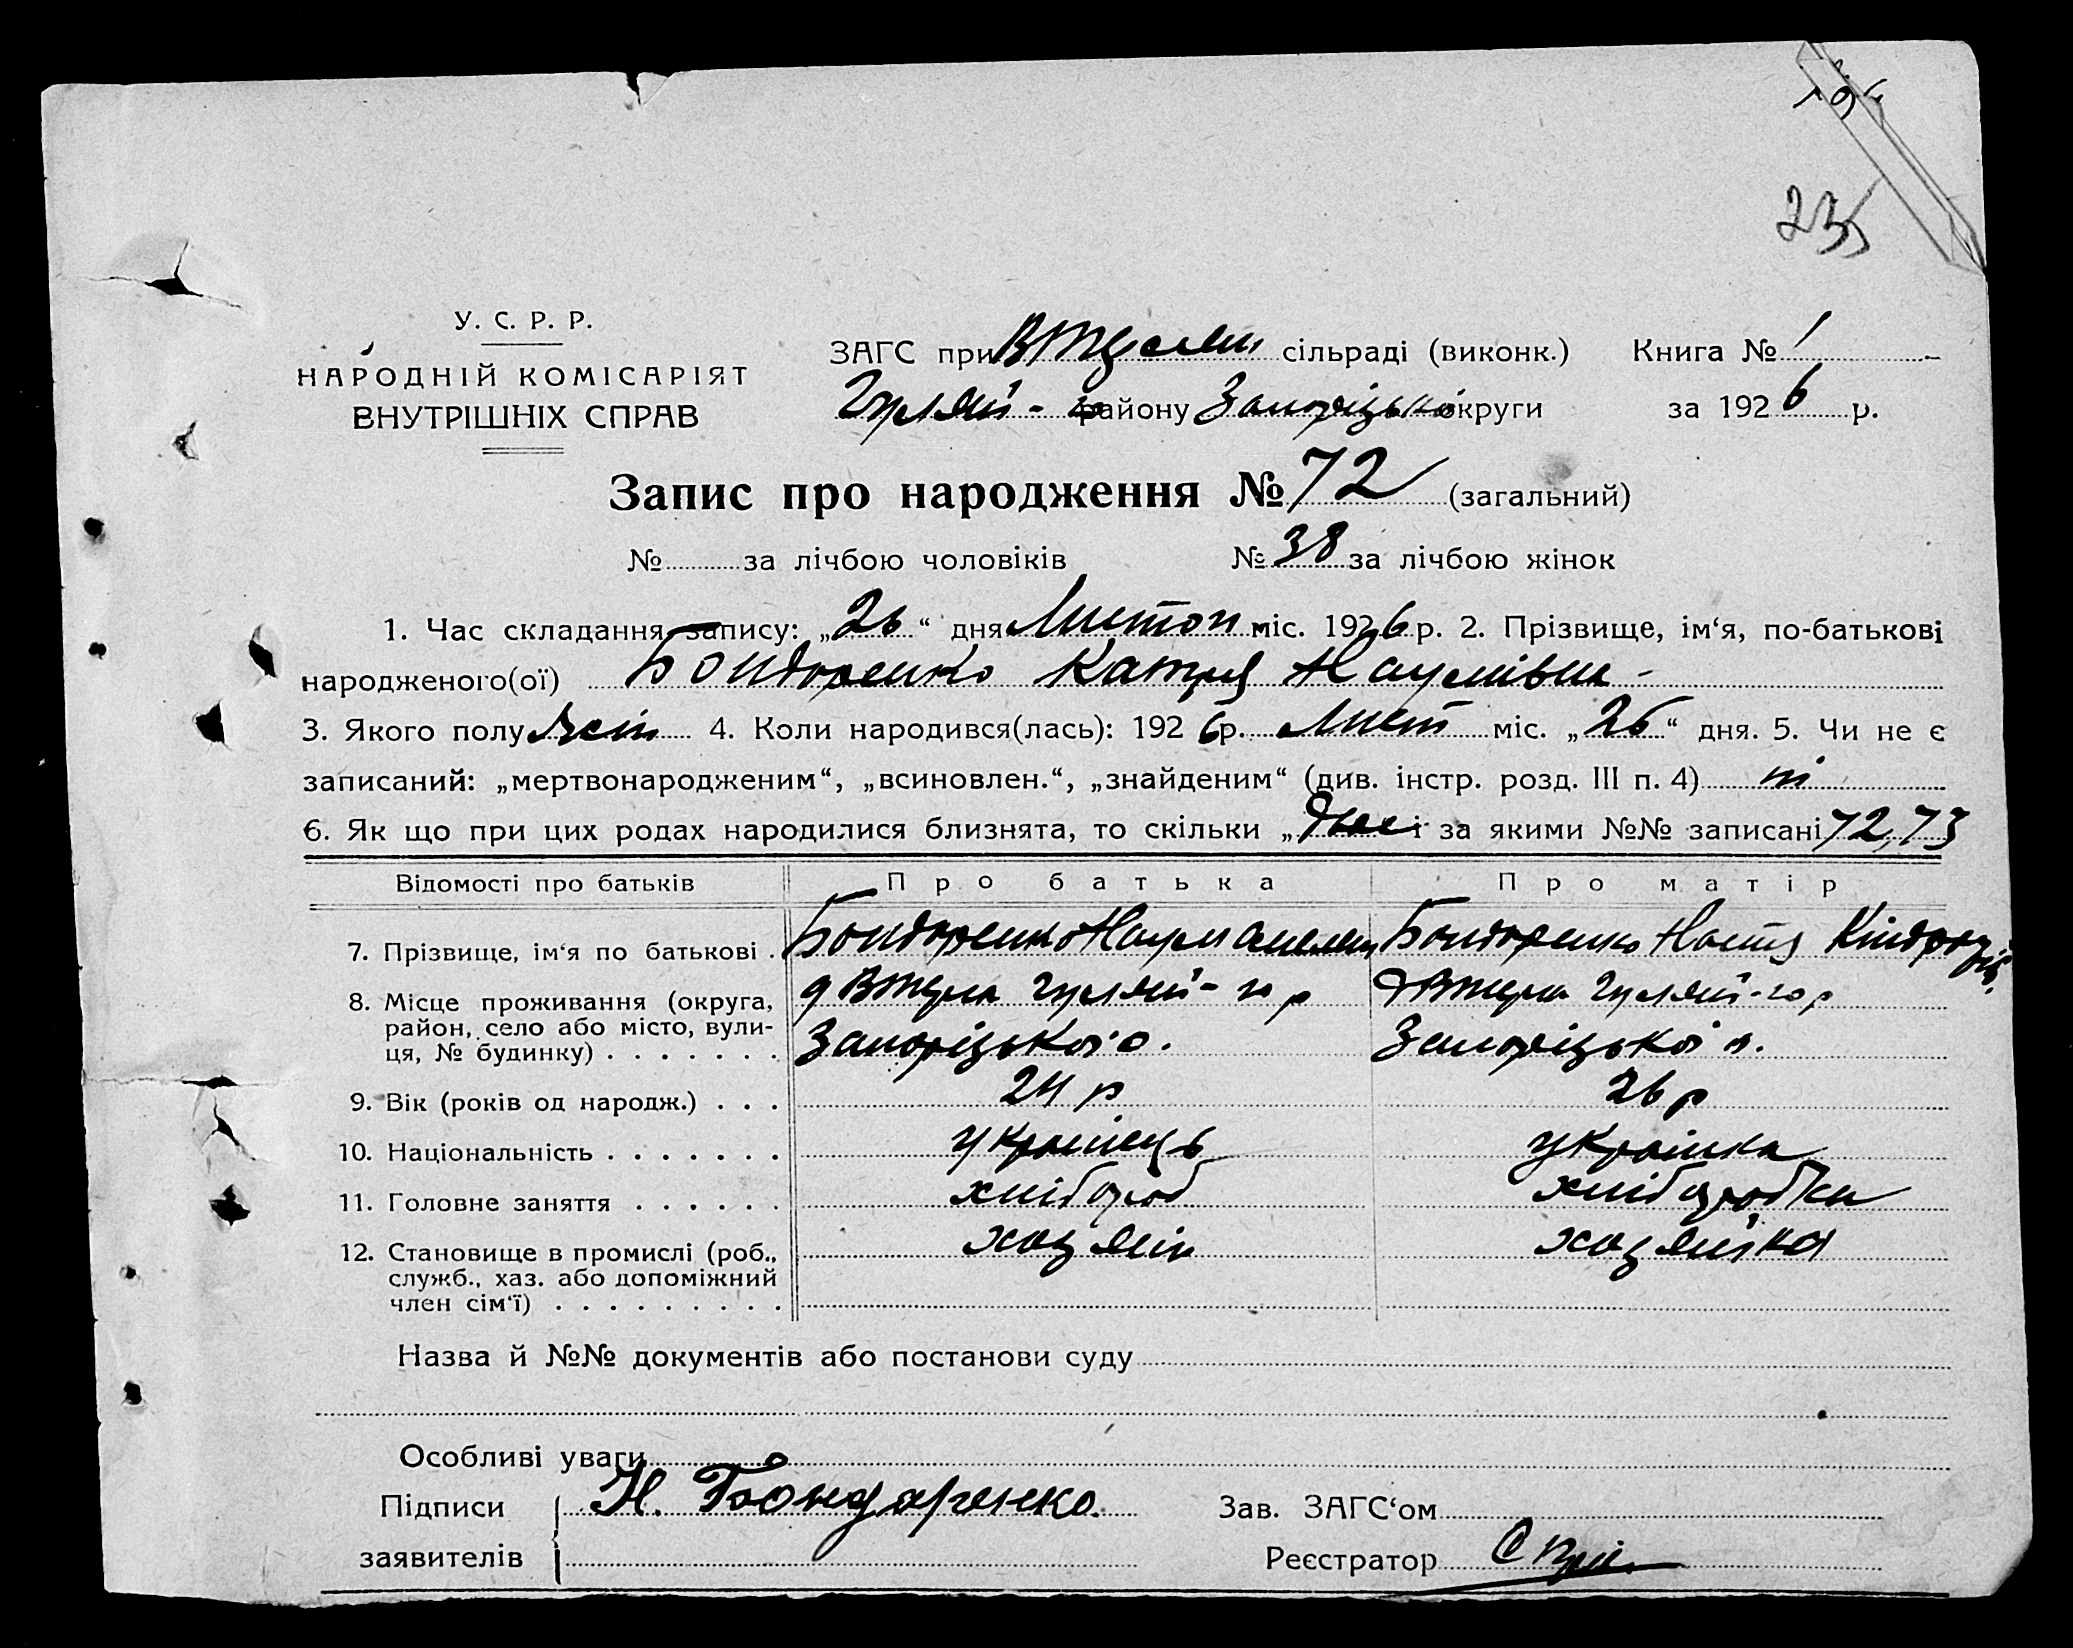 235
У. С. Р. Р.
НАРОДНІЙ КОМІСАРІЯТ
ВНУТРІШНІХ СПРАВ
ЗАГС при сільраді (виконк.) Книга № 1
Гуляй- району Запоріцької округи за 1926 р.
Запис про народження № 72 (загальний)
№ за лічбою чоловіків № 38 за лічбою жінок
1. Час складання запису: „26“ дня Листоп міс. 1926 р. 2. Прізвище, ім‘я, по-батькові
народженого(ої) Бондаренко Катря Наумівна -
3. Якого полу жін 4. Коли народився(лась): 1926 р. Лист міс. „26“ дня. 5. Чи не є
записаний: „мертвонародженим“, „всиновлен.“, „знайденим“ (див. інстр. розд. III п. 4) ні
6. Як що при цих родах народилися близнята, то скільки „ і за якими №№ записані 72, 73
Відомості про батьків Про батька Про матір
7. Прізвище, ім‘я по батькові . Бондаренко Наум Бондаренко Настя Кіндратів.
8. Місце проживання (округа, Гуляй-  р Гуляй-  р
район, село або місто, вули-
ця, № будинку) . . . . . . . Запоріцької о. Запоріцької о.
9. Вік (років од народж.) . . . 24 р 26 р
10. Національність . . . . . . . українець українка
11. Головне заняття . . . . . . хлібороб хліборобка
12. Становище в промислі (роб., хазяїн хазяйка
служб., хаз. або допоміжний
член сім‘ї) . . . . . . . . .
Назва й №№ документів або постанови суду
Особливі уваги
Підписи Н. Бондаренко. Зав. ЗАГС‘ом
заявителів Реєстратор